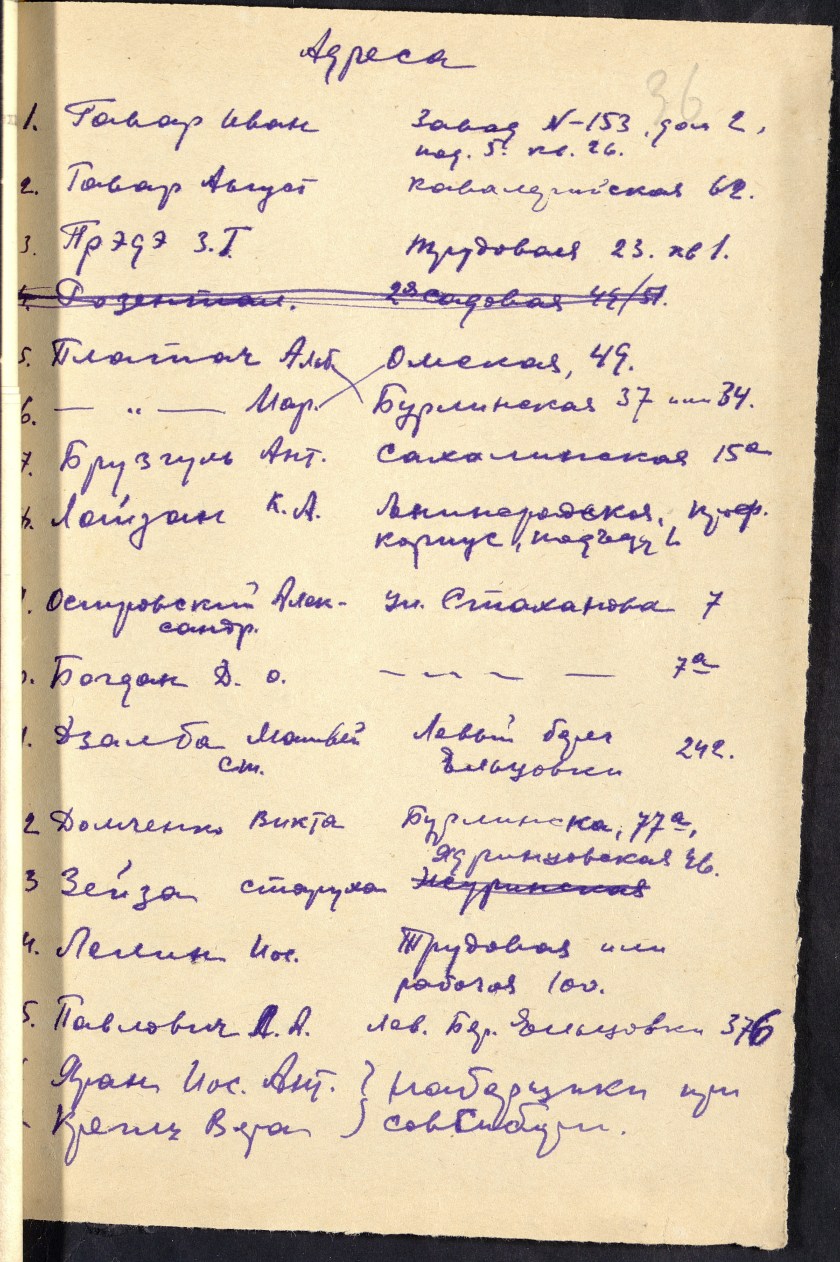 Адреса
36
1. Гавар Иван Завод N-153, дом 2,
под. 5. кв. 26.
2. Гавар Август Кавалерийская 62.
3. Прэдэ З.Г. Трудовая 23. кв 1.
4. Розенталь. 2я Садовая 49/51.
5. Платач Альб. Омская, 49.
6. — " — Мар. Бурлинская 37 или 34.
7. Брузгуль Ант. Сахалинская 15а
Лайзан К.А. Ленинградская, проф.
корпус, подъезд 1
Островский Алек- ул. Стаханова 7
сандр.
Богдан Д. О. — — — — 7а
1. Дзалба Матвей Левый берег 242.
ст. Ельцовки
2 Домченко Викта Бурлинска, 77а,
Ядринцовская 46.
3 Зейза старуха
4. Лелин Иос. Трудовая или
рабочая 100.
5. Павлович А.А. Лев. Бер. Ельцовки 376
Яран Иос. Ант. } наборщики при
Вера } СовСибири.